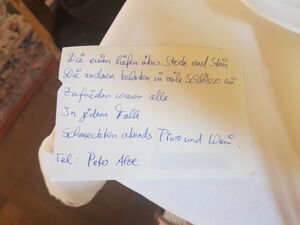 Die einen liefen über Stock und Stein
Die anderen kehrten in viele Schlösser ein
Zufrieden waren alle.
In jedem Falle
schmeckten abends Pivo und Wein.
Peter